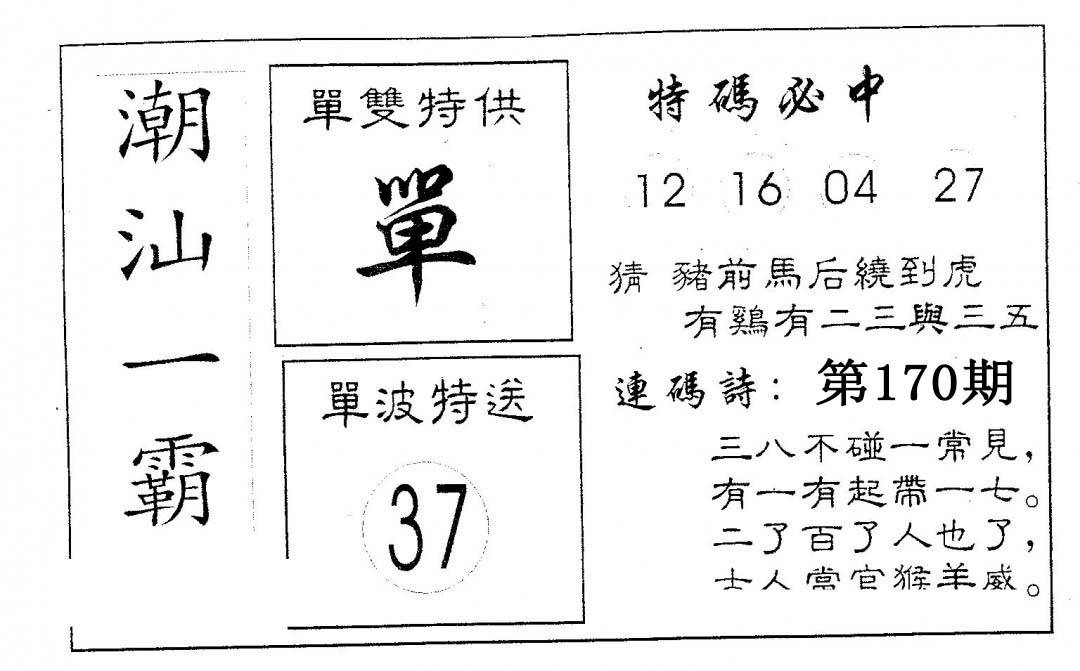 潮汕一霸
單雙特供
單
單波特送
37
特碼必中
12 16 04 27
猜 豬前馬后繞到虎
有鷄有二三與三五
連碼詩：第170期
三八不碰一常見，
有一有起帶一七。
二了百了人也了，
士人當官猴羊威。